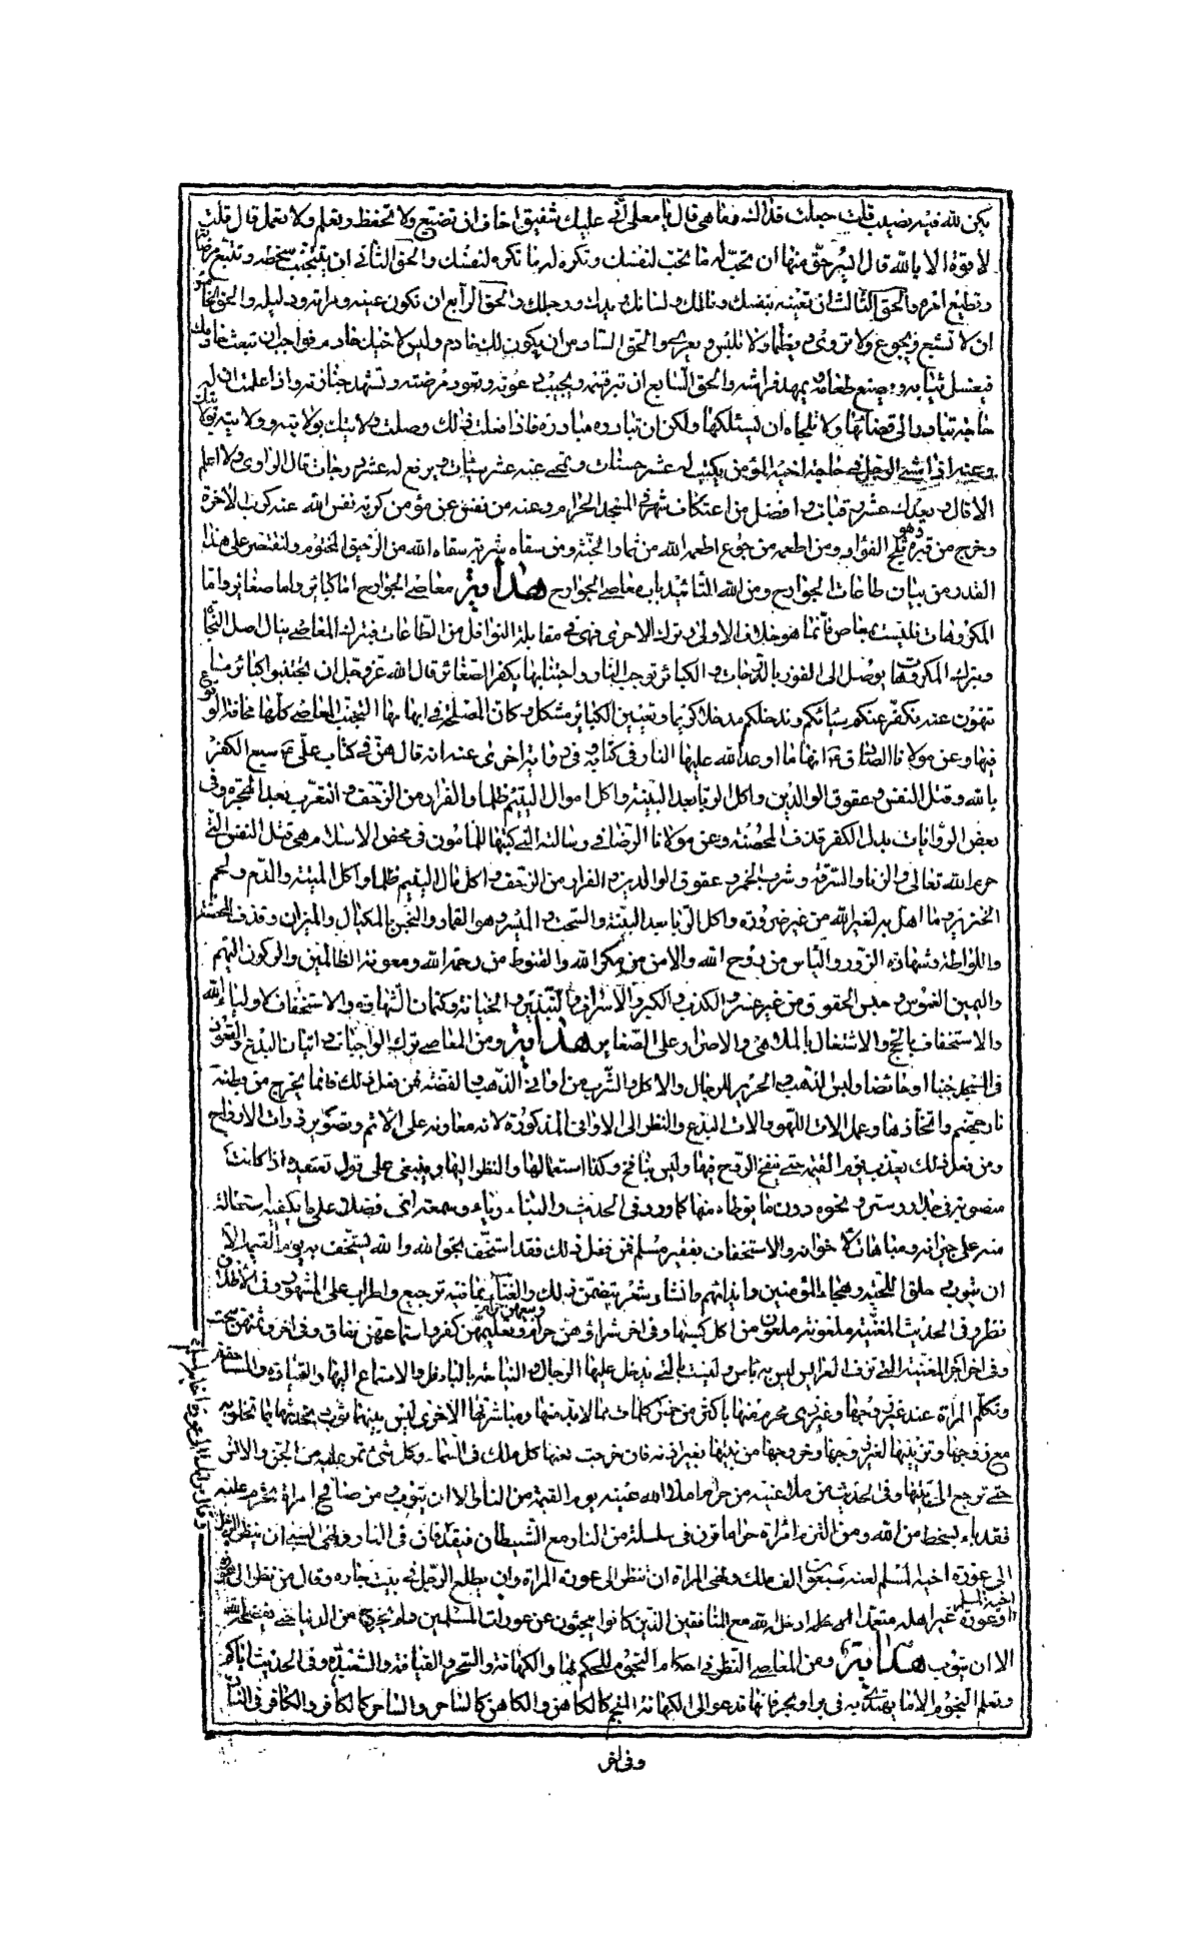 يكن لله فيه نصيب قلت جعلت فداك وما هي قال يا معلى اني عليك شفيق اخاف ان تضيع ولا تحفظ وتعلم ولا تعمل قال قلت
لا قوة الا بالله قال ايسر حق منها ان تحب له ما تحب لنفسك وتكره له ما تكره لنفسك والحق الثاني ان تجتنب سخطه وتتبع مرضاته
وتطيع امره والحق الثالث ان تعينه بنفسك ومالك ولسانك ويدك ورجلك والحق الرابع ان تكون عينه ومراته ودليله والحق الخامس
ان لا تشبع ويجوع ولا تروى ويظمأ ولا تلبس ويعرى والحق السادس ان يكون لك خادم وليس لاخيك خادم فواجب ان تبعث خادمك
فيغسل ثيابه ويصنع طعامه ويمهد فراشه والحق السابع ان تبر قسمه وتجيب دعوته وتعود مريضه وتشهد جنازته واذا علمت ان له
حاجة تبادر الى قضائها ولا تلجاه ان يسئلكها ولكن ان تبادره مبادرة فاذا فعلت ذلك وصلت ولايتك بولايته وولايته بولايتك
وعنه اذا مشى الرجل في حاجة اخيه المؤمن يكتب له عشر حسنات وتمحى عنه عشر سيئات ويرفع له عشر درجات قال الراوي ولا اعلم
الا قال ويعدل عشر رقبات وافضل من اعتكاف شهر في المسجد الحرام وعنه من نفس عن مؤمن كربة نفس الله عنه كرب الاخرة
وخرج من قبره وهو ثلج الفؤاد ومن اطعمه من جوع اطعمه الله من ثمار الجنة ومن سقاه شربة سقاه الله من الرحيق المختوم ولنقتصر على هذا
القدر من بيان طاعات الجوارح ومن الله التائيد باب معاصي الجوارح هداية معاصي الجوارح اما كبائر واما صغائر واما
المكروهات فليست بمعاص وانما هو خلاف الاولى وترك الاحرى فهي في مقابلة النوافل من الطاعات فبترك المعاصي ينال اصل النجاة
وبترك المكروهات يوصل الى الفوز بالدرجات والكبائر توجب النار واجتنابها يكفر الصغائر قال الله عز وجل ان تجتنبوا كبائر ما
تنهون عنه نكفر عنكم سيئاتكم وندخلكم مدخلا كريما وتعيين الكبائر مشكل وكان المصلحة في ابهامها التجنب المعاصي كلها مخافة الوقوع
فيها وعن مولانا الصادق ع انها ما اوعد الله عليها النار في كتابه وفي رواية اخرى عنه انه قال هن في كتاب علي ع سبع الكفر
بالله وقتل النفس وعقوق الوالدين واكل الربا بعد البينة واكل اموال اليتيم ظلما والفرار من الزحف والتعرب بعد الهجرة وفي
بعض الروايات بدل الكفر قذف المحصنة وعن مولانا الرضا في رسالته التي كتبها للمأمون في محض الاسلام هي قتل النفس التي
حرم الله تعالى والزنا والسرقة وشرب الخمر وعقوق الوالدين والفرار من الزحف واكل مال اليتيم ظلما واكل الميتة والدم ولحم
الخنزير وما اهل به لغير الله من غير ضرورة واكل الربا بعد البينة والسحت والميسر وهو القمار والبخس بالمكيال والميزان وقذف المحصنة
واللواطة وشهادة الزور والياس من روح الله والامن من مكر الله والقنوط من رحمة الله ومعونة الظالمين والركون اليهم
واليمين الغموس وحبس الحقوق من غير عسر والكذب والكبر والاسراف والتبذير والخيانة وكتمان الشهادة والاستخفاف لاولياء الله
والاستخفاف بالحج والاشتغال بالملاهي والاصرار على الصغاير هداية ومن المعاصي ترك الواجبات واتيان البدع والقعود
في المسجد جنبا او حائضا ولبس الذهب والحرير للرجال والاكل والشرب من اواني الذهب والفضة فمن فعل ذلك فانما يجرجر في بطنه
نار جهنم واتخاذها وعمل الات اللهو والات البدع والنظر الى الاواني المذكورة لانه معاونة على الاثم وتصوير ذوات الارواح
ومن فعل ذلك يعذب يوم القيمة حتى ينفخ الروح فيها وليس بنافخ وكذا استعمالها والنظر اليها وينبغي على قول تقييده اذا كانت
منصوبة في حائط وستر ونحوه دون ما يوطأ منها كما ورد في الحديث والبناء رياء وسمعة اي فضلا على ما يكفيه استطالة
منه على جيرانه ومباهاة لاخوانه والاستخفاف بفقير مسلم فمن فعل ذلك فقد استخف بحق الله والله يستخف به يوم القيمة الا
ان يتوب وحلق اللحية وهجاء المؤمنين وايذائهم وانشاء شعر يتضمن ذلك والغناء بما فيه ترجيع واطراب على المشهور وفي الاطلاق
نظر وفي الحديث المغنية ملعونة ملعون من اكل كسبها وفي اخر شراؤهن حرام وبيعهن حرام وتعليمهن كفر واستماعهن نفاق وفي اخر وثمنهن سحت
وفي اخر اجر المغنية التي تزف العرايس ليس به باس وليست بالتي يدخل عليها الرجال والنياحة بالباطل والاستماع اليها والقيادة والمساحقة
وتكلم المراة عند غير زوجها وغير ذي محرم منها باكثر من خمس كلمات مما لابد منها ومباشرتها الاخرى ليس بينهما ثوب وتحدثها بما تخلو به
مع زوجها وتزينها لغير زوجها وخروجها من بيتها بغير اذنه فان خرجت لعنها كل ملك في السماء وكل شيء تمر عليه من الجن والانس
حتى ترجع الى بيتها وفي الحديث من ملأ عينيه من حرام املأ الله عينيه يوم القيمة من النار الا ان يتوب ومن صافح امراة تحرم عليه
فقد باء بسخط من الله ومن التزم امراة حراما قرن في سلسلة من النار مع الشيطان فيقذفان في النار ونهى النبي ان ينظر الرجل
الى عورة اخيه المسلم لعنه سبعون الف ملك ونهى المراة ان تنظر الى عورة المراة وان يطلع الرجل في بيت جاره وقال من نظر الى عورة
اخيه المسلم او عورة غير اهله متعمدا ادخله الله مع المنافقين الذين كانوا يبحثون عن عورات المسلمين ولم يخرج من الدنيا حتى يفضحه الله
الا ان يتوب هداية ومن المعاصي النظر في احكام النجوم للحكم بها والكهانة والسحر والقيافة والشعبذة وفي الحديث اياكم
وتعلم النجوم الا ما يهتدى به في بر او بحر فانها تدعو الى الكهانة المنجم كالكاهن والكاهن كالساحر والساحر كالكافر والكافر في النار
وفي اخر